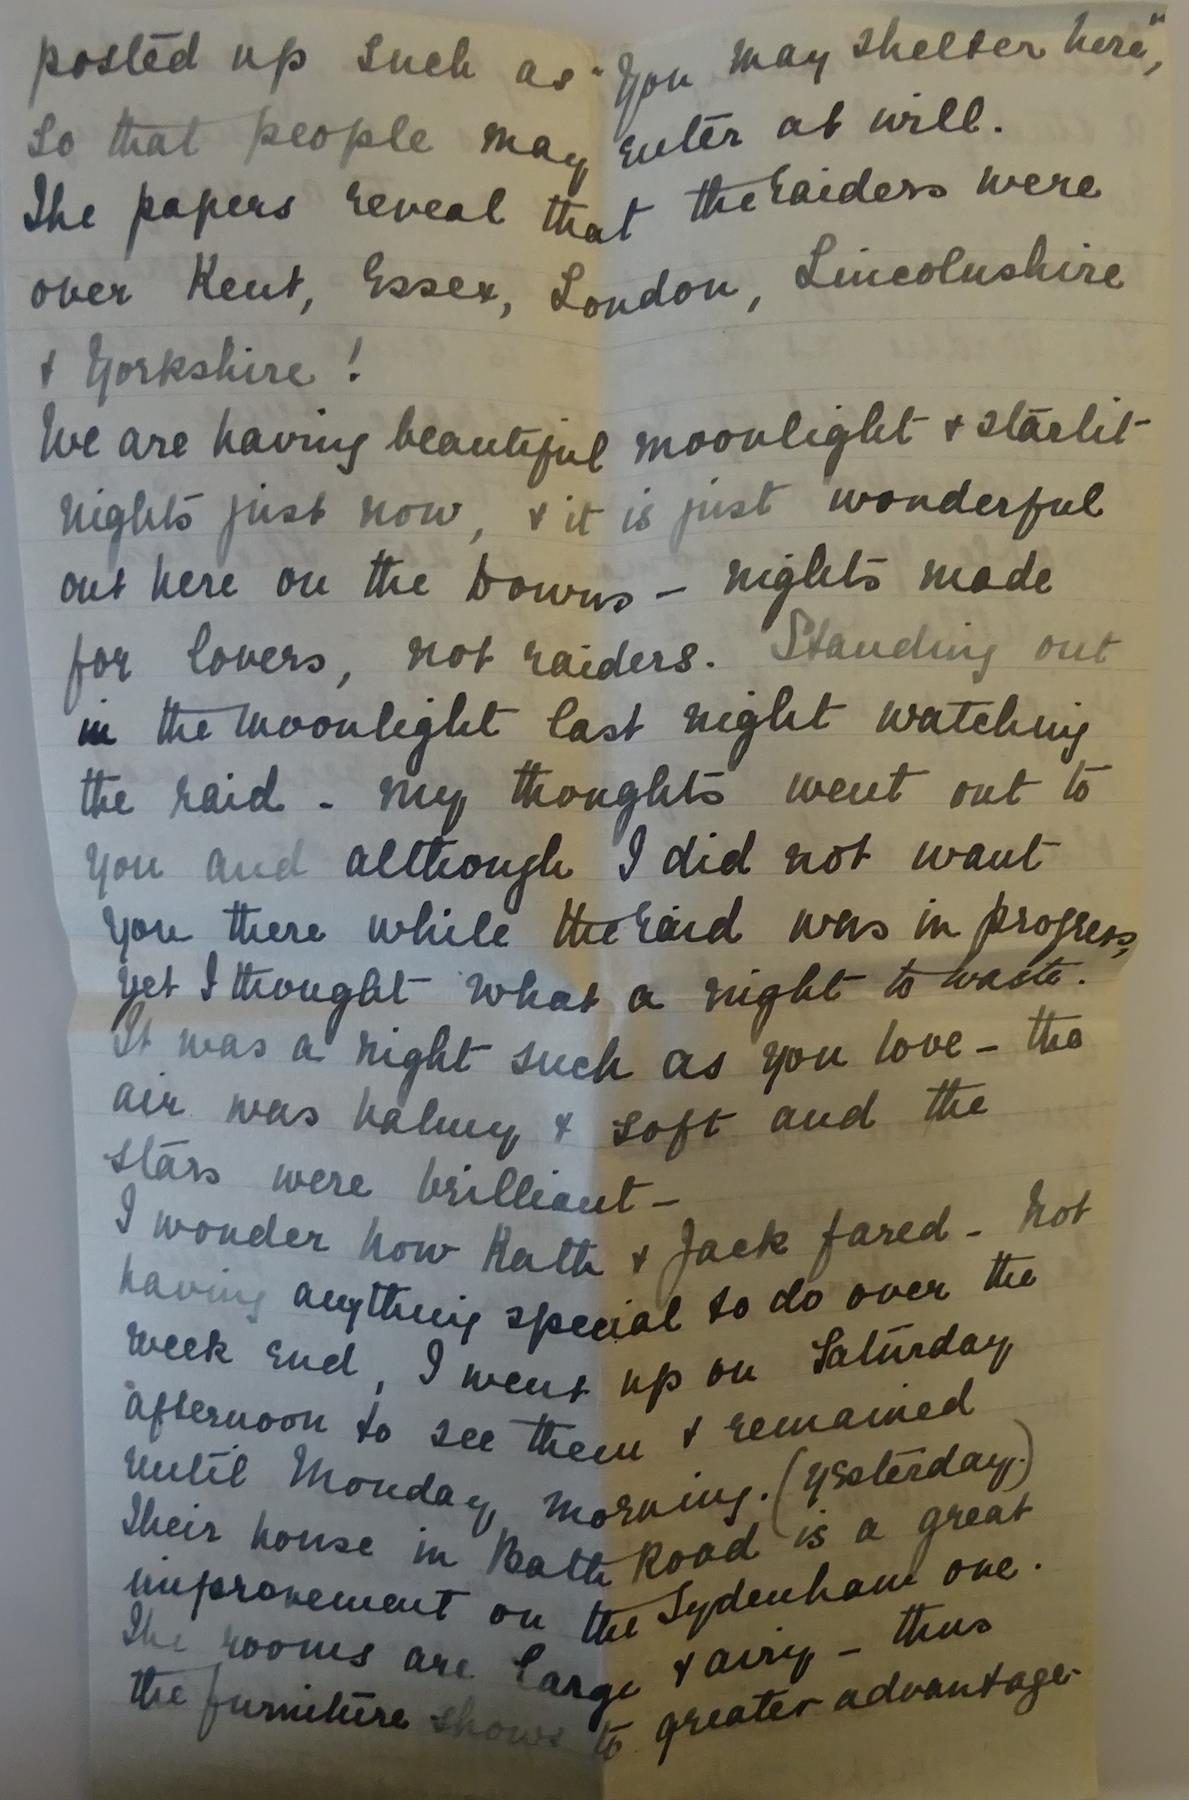 posted up such as "You may shelter here",
so that people may enter at will.
The papers reveal that the raiders were
over Kent, Essex, London, Lincolnshire
& Yorkshire !
We are having beautiful moonlight & starlit
nights just now, & it is just wonderful
out here on the Downs – nights made
for lovers, not raiders. Standing out
in the moonlight last night watching
the raid - my thoughts went out to
you and although I did not want
you there while the raid was in progress,
yet I thought what a night to waste.
It was a night such as you love – the
air was balmy & soft and the
stars were brilliant –
I wonder how Kath & Jack fared – Not
having anything special to do over the
week end, I went up on Saturday
afternoon to see them & remained
until Monday morning. (yesterday.)
Their house in Bath Road is a great
improvement on the Sydenham one.
The rooms are large & airy – thus
the furniture shows to greater advantage.